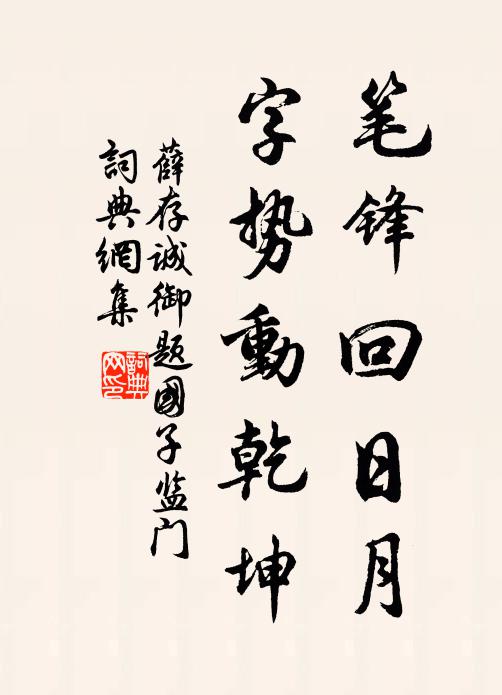 笔锋回日月
字势動乾坤
薛存诚御题國子监门
詞典網集
詞典网印